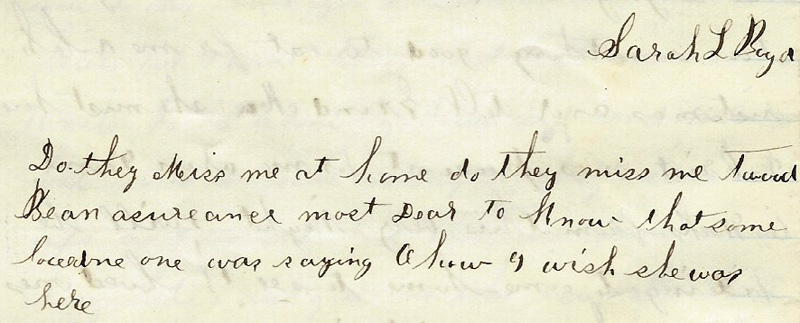 Sarah L Boyd
Do they Miss me at home do they miss me twood
Be an asureance most Dear to Know that some
loveone one was saying O how I wish she was
here